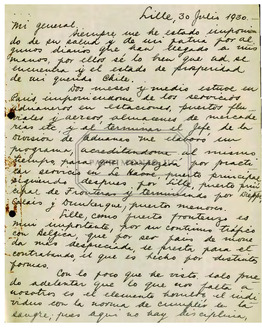 Lille, 30 Julio 1930.-
Mi general,
Siempre me he estado imponiendo
do de su salud y de mi patria por al
gunos diarios que han llegado a mis
manos, por ellos sé lo bien que ud. se
encuentra y el estado de prosperidad
de mi querido Chile.
Dos meses y medio estuve en
París imponiéndome de los servicios
aduaneros en estaciones, puertos flu
viales y aéreos, almacenes de mercade
rías etc. y al terminar el Jefe de la
División de Aduanas me elaboró un
programa, acreditándome al mismo
tiempo, para que consiga por practi
car servicio en Le Havre, puerto principal
siguiendo después por Lille, puerto prin
cipal de frontera y terminando por Dieppe
Calais y Dunkerque, puertos menores.
Lille, como puerto fronterizo es
muy importante, por su continuo tráfico
con Bélgica, que por ser país de mone
da más despreciada, se presta para el
contrabando, el que es hecho por distintas
formas.
Con lo poco que he visto, sólo pue
do adelantar que lo que nos falta a
nosotros es el elemento hombre, el indi
viduo con la norma de cumplir en la
sangre; pues aquí no hay disciplina,